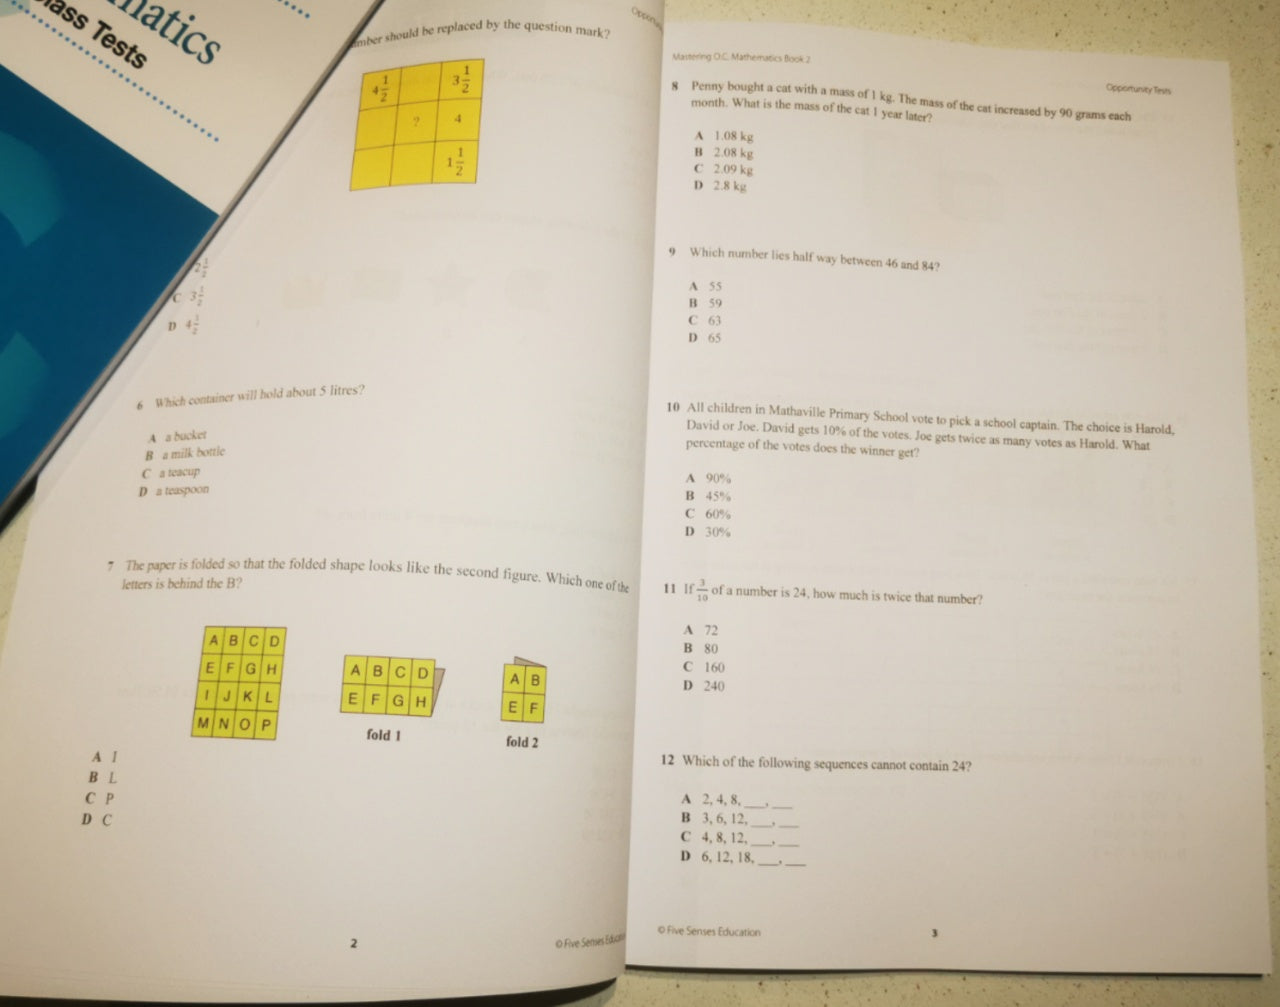 matics
ass Tests
mber should be replaced by the question mark?
4 1/2 3 1/2
? 4
1 1/2
2 1/2
C 3 1/2
D 4 1/2
6 Which container will hold about 5 litres?
A a bucket
B a milk bottle
C a teacup
D a teaspoon
7 The paper is folded so that the folded shape looks like the second figure. Which one of the
letters is behind the B?
A B C D
E F G H
I J K L
M N O P
A B C D
E F G H
fold 1
A B
E F
fold 2
A I
B L
C P
D C
2
© Five Senses
Mastering O.C. Mathematics Book 2
Opportunity Tests
8 Penny bought a cat with a mass of 1 kg. The mass of the cat increased by 90 grams each
month. What is the mass of the cat 1 year later?
A 1.08 kg
B 2.08 kg
C 2.09 kg
D 2.8 kg
9 Which number lies half way between 46 and 84?
A 55
B 59
C 63
D 65
10 All children in Mathaville Primary School vote to pick a school captain. The choice is Harold,
David or Joe. David gets 10% of the votes. Joe gets twice as many votes as Harold. What
percentage of the votes does the winner get?
A 90%
B 45%
C 60%
D 30%
11 If 3/10 of a number is 24, how much is twice that number?
A 72
B 80
C 160
D 240
12 Which of the following sequences cannot contain 24?
A 2, 4, 8, ___, ___
B 3, 6, 12, ___, ___
C 4, 8, 12, ___, ___
D 6, 12, 18, ___, ___
© Five Senses Education
3